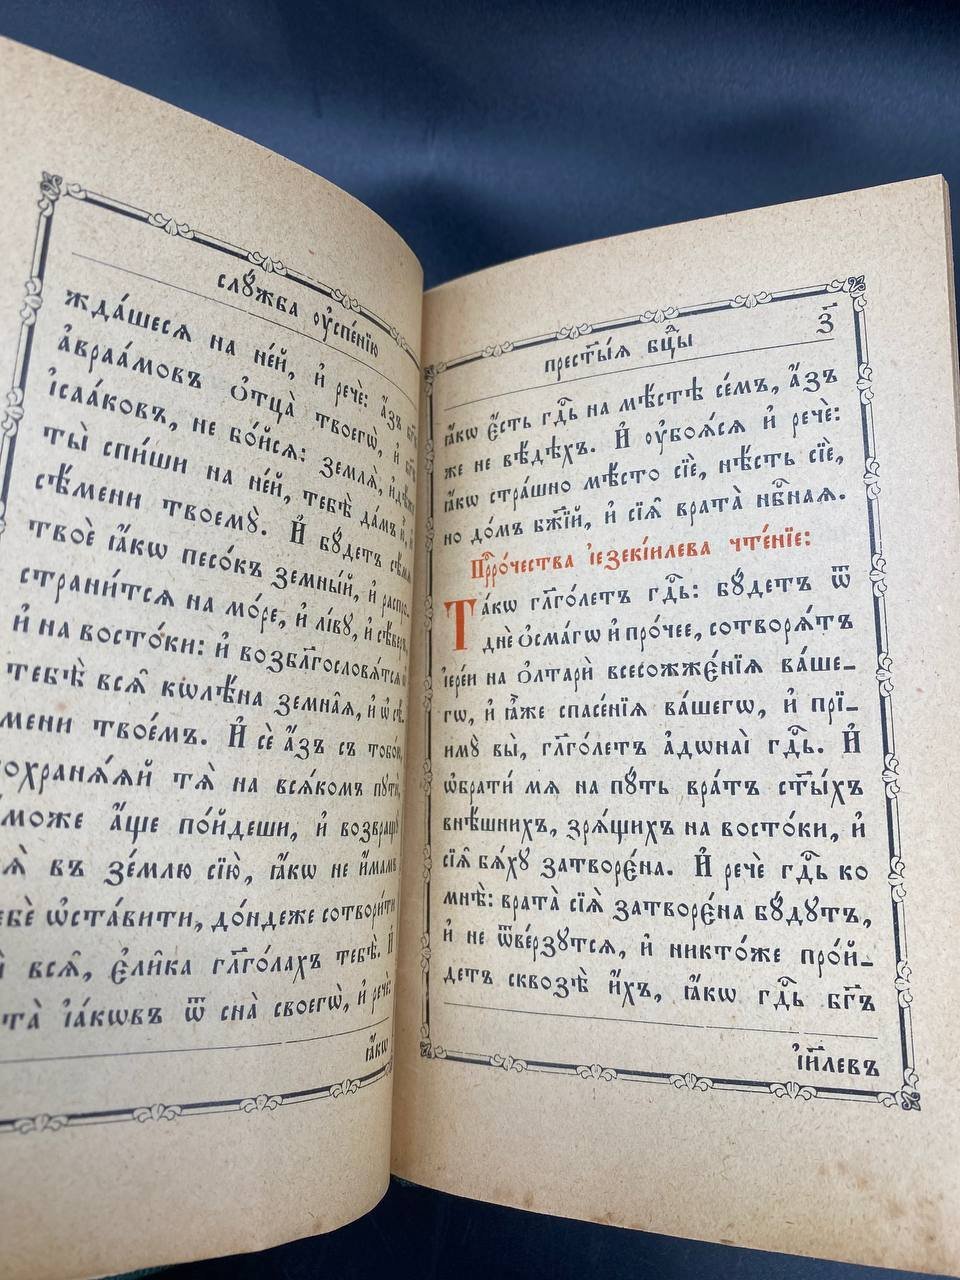 слꙋ́жба ᲂу҆спе́нїю
жда́шесѧ на не́й, и҆ речѐ: а҆́зъ бг҃ъ
а҆враа́мовъ ѻ҆тца̀ твоегѡ̀, и҆ бг҃ъ
і҆саа́ковъ, не бо́йсѧ: землѧ̀, и҆дѣ́же
ты̀ спи́ши на не́й, тебѣ̀ да́мъ ю҆̀, и҆
сѣ́мени твоемꙋ̀. И҆ бꙋ́детъ сѣ́мѧ
твоѐ ꙗ҆́кѡ песо́къ земны́й, и҆ распро-
страни́тсѧ на мо́ре, и҆ лі́вꙋ, и҆ сѣ́веръ,
и҆ на восто́ки: и҆ возблагословѧ́тсѧ ѡ҆
тебѣ̀ всѧ̑ кѡлѣ́на земна̑ѧ, и҆ ѡ҆ сѣ́-
мени твое́мъ. И҆ сѐ а҆́зъ съ тобо́ю,
сохранѧ́ѧй тѧ̀ на всѧ́комъ пꙋтѝ,
а҆́може а҆́ще по́йдеши, и҆ возвращꙋ̀
тѧ̀ въ зе́млю сїю̀, ꙗ҆́кѡ не и҆́мамъ
тебѐ ѡ҆ста́вити, до́ндеже сотвори́ти
мѝ всѧ̑, є҆ли̑ка гл҃го́лахъ тебѣ̀. И҆
воста̀ і҆а́кѡвъ ѿ сна̀ своегѡ̀, и҆ речѐ:
ꙗ҆́кѡ
прест҃ы́ѧ бц҃ы з҃
ꙗ҆́кѡ є҆́сть гдⷭ҇ь на мѣ́стѣ се́мъ, а҆́зъ
же не вѣ́дѣхъ. И҆ ᲂу҆боѧ́сѧ и҆ речѐ:
ꙗ҆́кѡ стра́шно мѣ́сто сїѐ, нѣ́сть сїѐ,
но до́мъ бж҃їй, и҆ сїѧ̑ врата̀ нбⷭ҇наѧ.
Прⷪ҇ро́чества і҆езекі́илева чте́нїе:
Та́кѡ гл҃го́летъ гдⷭ҇ь: бꙋ́детъ ѿ
днѐ ѻ҆сма́гѡ и҆ про́чее, сотворѧ́тъ
і҆ере́и на ѻ҆лтарѝ всесожжє́нїѧ ва́ше-
гѡ, и҆ ꙗ҆̀же спасе́нїѧ ва́шегѡ, и҆ прїи-
имꙋ̀ вы̀, гл҃го́летъ а҆дѡнаі̀ гдⷭ҇ь. И҆
ѡ҆брати́ мѧ на пꙋ́ть вра́тъ ст҃ы́хъ
внѣ́шнихъ, зрѧ́щихъ на восто́ки, и҆
сїѧ̑ бѧ́хꙋ затворє́на. И҆ речѐ гдⷭ҇ь ко
мнѣ̀: врата̀ сїѧ̑ затворє́на бꙋ́дꙋтъ,
и҆ не ѿве́рзꙋтсѧ, и҆ никто́же про́й-
детъ сквозѣ̀ и҆́хъ, ꙗ҆́кѡ гдⷭ҇ь бг҃ъ
і҆и҃левъ